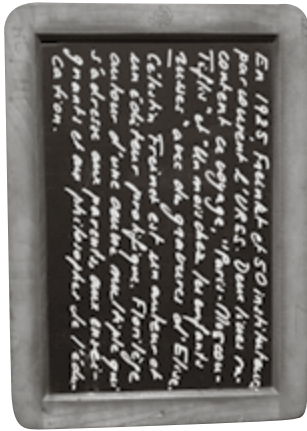 En 1925 Freinet et 50 instituteurs
parcourent L'URSS. Deux livres ra-
content ce voyage, "Paris-Moscou-
Tiflis" et "Un mois chez les enfants
russes" avec de gravures d'Elise.
Célestin Freinet est un auteur et
un éditeur prolifique. Florilège
autour d'une œuvre multiple qui
s'adresse aux parents, aux ensei-
gnants et aux philosophes de l'édu-
cation.